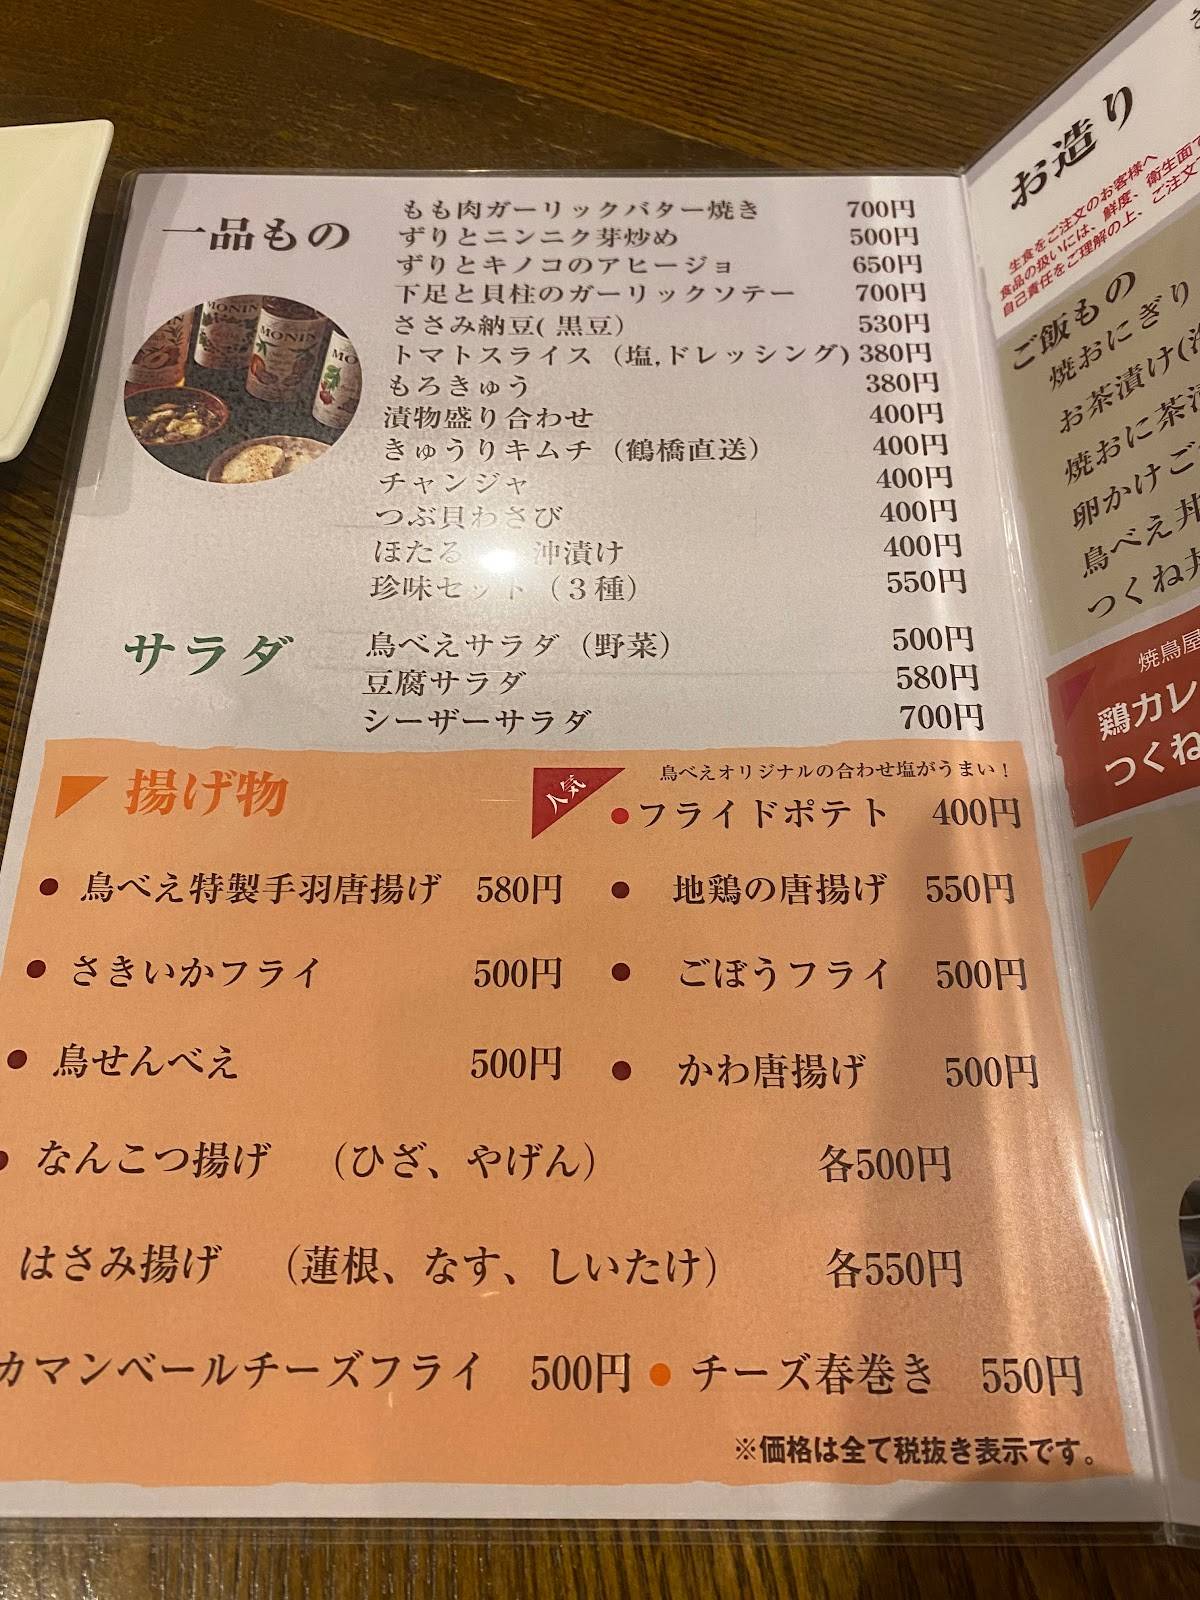 一品もの
もも肉ガーリックバター焼き 700円
ずりとニンニク芽炒め 500円
ずりとキノコのアヒージョ 650円
下足と貝柱のガーリックソテー 700円
ささみ納豆(黒豆) 530円
トマトスライス(塩,ドレッシング) 380円
もろきゅう 380円
漬物盛り合わせ 400円
きゅうりキムチ(鶴橋直送) 400円
チャンジャ 400円
つぶ貝わさび 400円
ほたる 沖漬け 400円
珍味セット(3種) 550円
MONIN
サラダ
鳥べえサラダ(野菜) 500円
豆腐サラダ 580円
シーザーサラダ 700円
揚げ物
人気
鳥べえオリジナルの合わせ塩がうまい!
●フライドポテト 400円
● 鳥べえ特製手羽唐揚げ 580円
● 地鶏の唐揚げ 550円
● さきいかフライ 500円
● ごぼうフライ 500円
● 鳥せんべえ 500円
● かわ唐揚げ 500円
● なんこつ揚げ (ひざ、やげん) 各500円
はさみ揚げ (蓮根、なす、しいたけ) 各550円
カマンベールチーズフライ 500円
● チーズ春巻き 550円
※価格は全て税抜き表示です。
お造り
生食をご注文のお客様へ
食品の扱いには、鮮度、衛生面で
自己責任をご理解の上、ご注文
ご飯もの
焼おにぎり
お茶漬け
焼おに茶漬
卵かけご
鳥べえ丼
つくね丼
焼鳥屋
鶏カレ
つくね